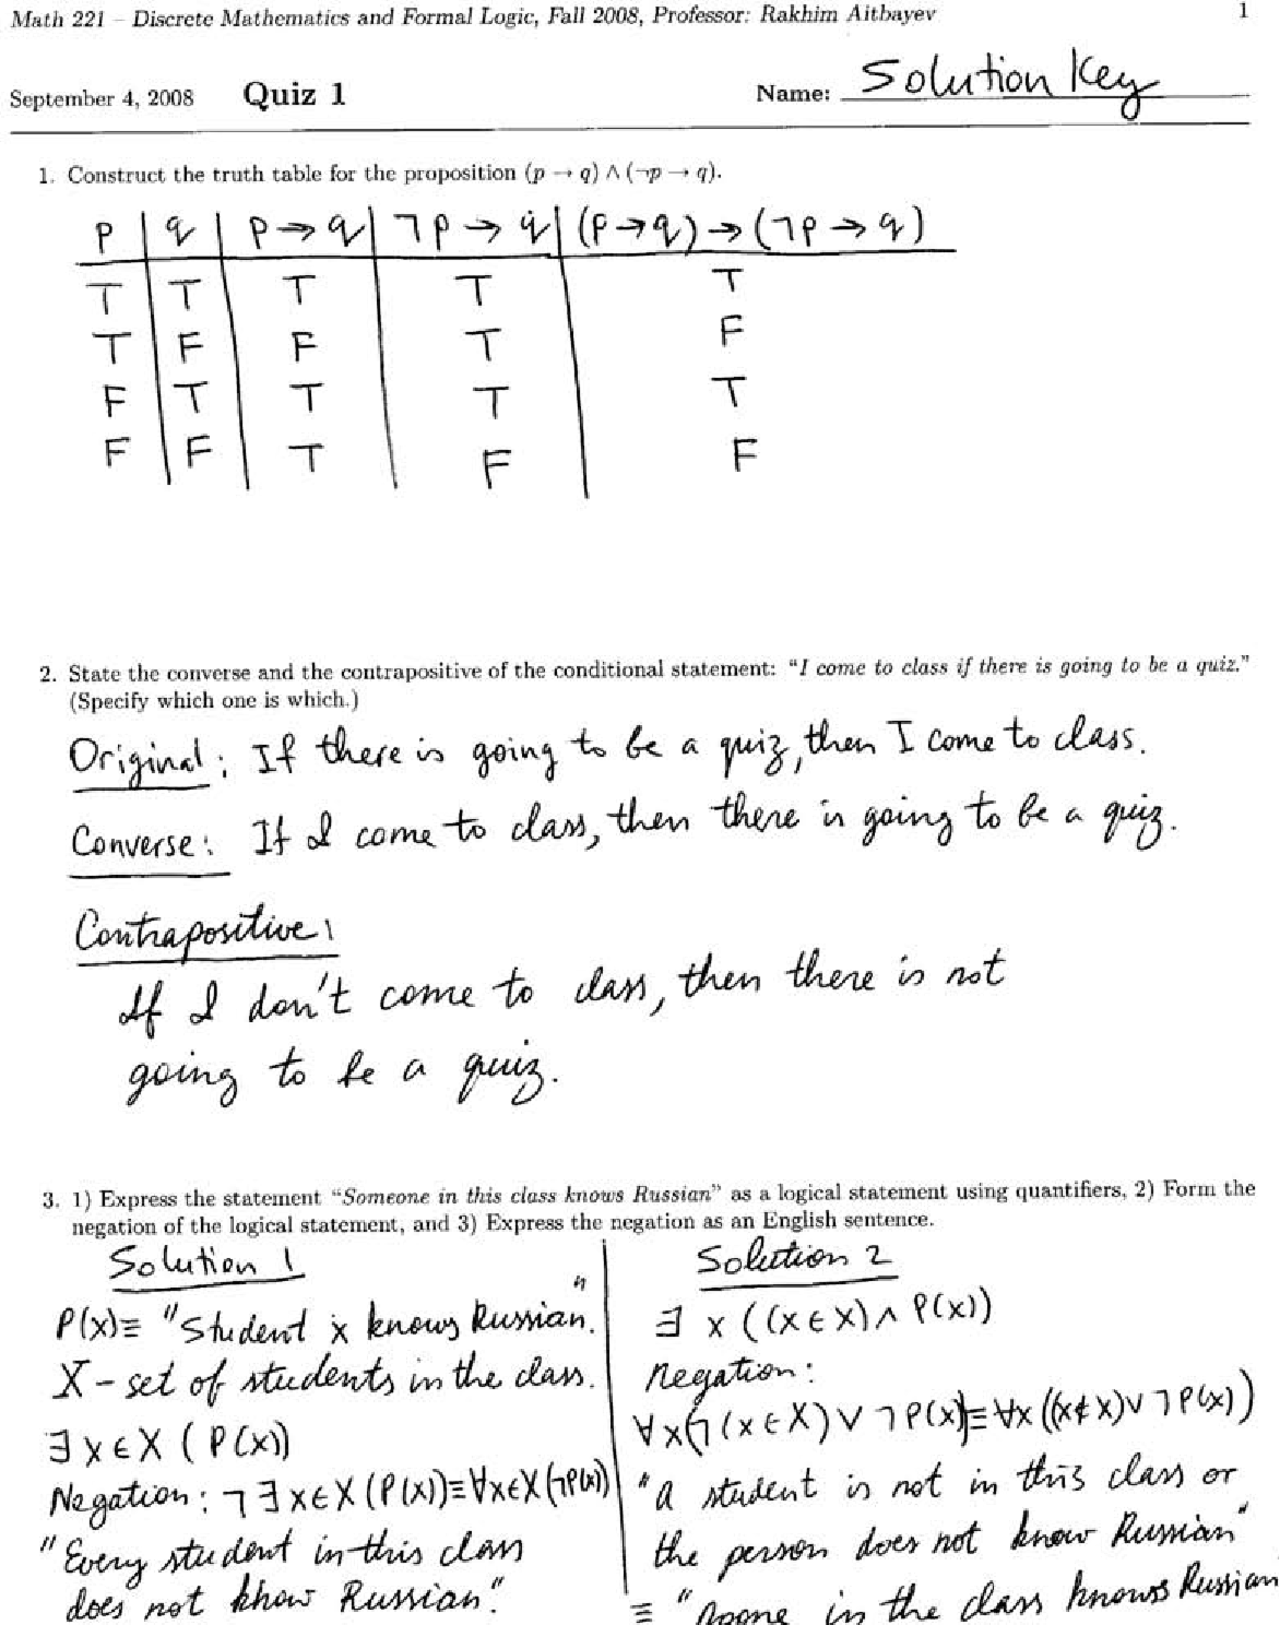 Math 221 – Discrete Mathematics and Formal Logic, Fall 2008, Professor: Rakhim Aitbayev 1
September 4, 2008 Quiz 1 Name: Solution Key
1. Construct the truth table for the proposition (p → q) ∧ (¬p → q).
p q p → q ¬p → q (p → q) → (¬p → q)
T T T T T
T F F T F
F T T T T
F F T F F
2. State the converse and the contrapositive of the conditional statement: “I come to class if there is going to be a quiz.”
(Specify which one is which.)
Original: If there is going to be a quiz, then I come to class.
Converse: If I come to class, then there is going to be a quiz.
Contrapositive:
If I don't come to class, then there is not
going to be a quiz.
3. 1) Express the statement “Someone in this class knows Russian” as a logical statement using quantifiers, 2) Form the
negation of the logical statement, and 3) Express the negation as an English sentence.
Solution 1
P(x) ≡ "Student x knows Russian."
X – set of students in the class.
∃ x ∈ X (P(x))
Negation: ¬∃ x ∈ X (P(x)) ≡ ∀x∈X (¬P(x))
"Every student in this class
does not know Russian."
Solution 2
∃ x ((x ∈ X) ∧ P(x))
Negation:
∀x(¬(x ∈ X) ∨ ¬P(x)) ≡ ∀x ((x ∉ X) ∨ ¬P(x))
"A student is not in this class or
the person does not know Russian"
≡ "Noone in the class knows Russian